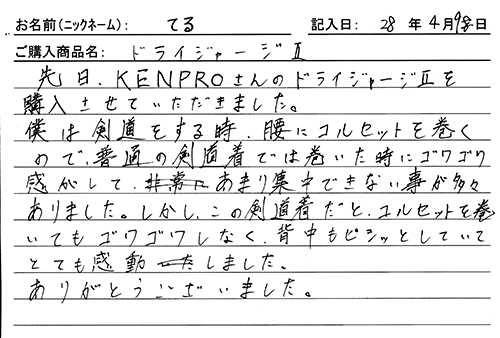 お名前(ニックネーム): てる 記入日: 28 年 4 月 日
ご購入商品名: ドライジャージⅡ
先日、KENPROさんのドライジャージⅡを
購入させていただきました。
僕は剣道をする時、腰にコルセットを巻く
ので、普通の剣道着では巻いた時にゴワゴワ
感がして、あまり集中できない事が多々
ありました。しかし、この剣道着だと、コルセットを巻
いてもゴワゴワしなく、背中もピシッとしていて
とても感動しました。
ありがとうございました。